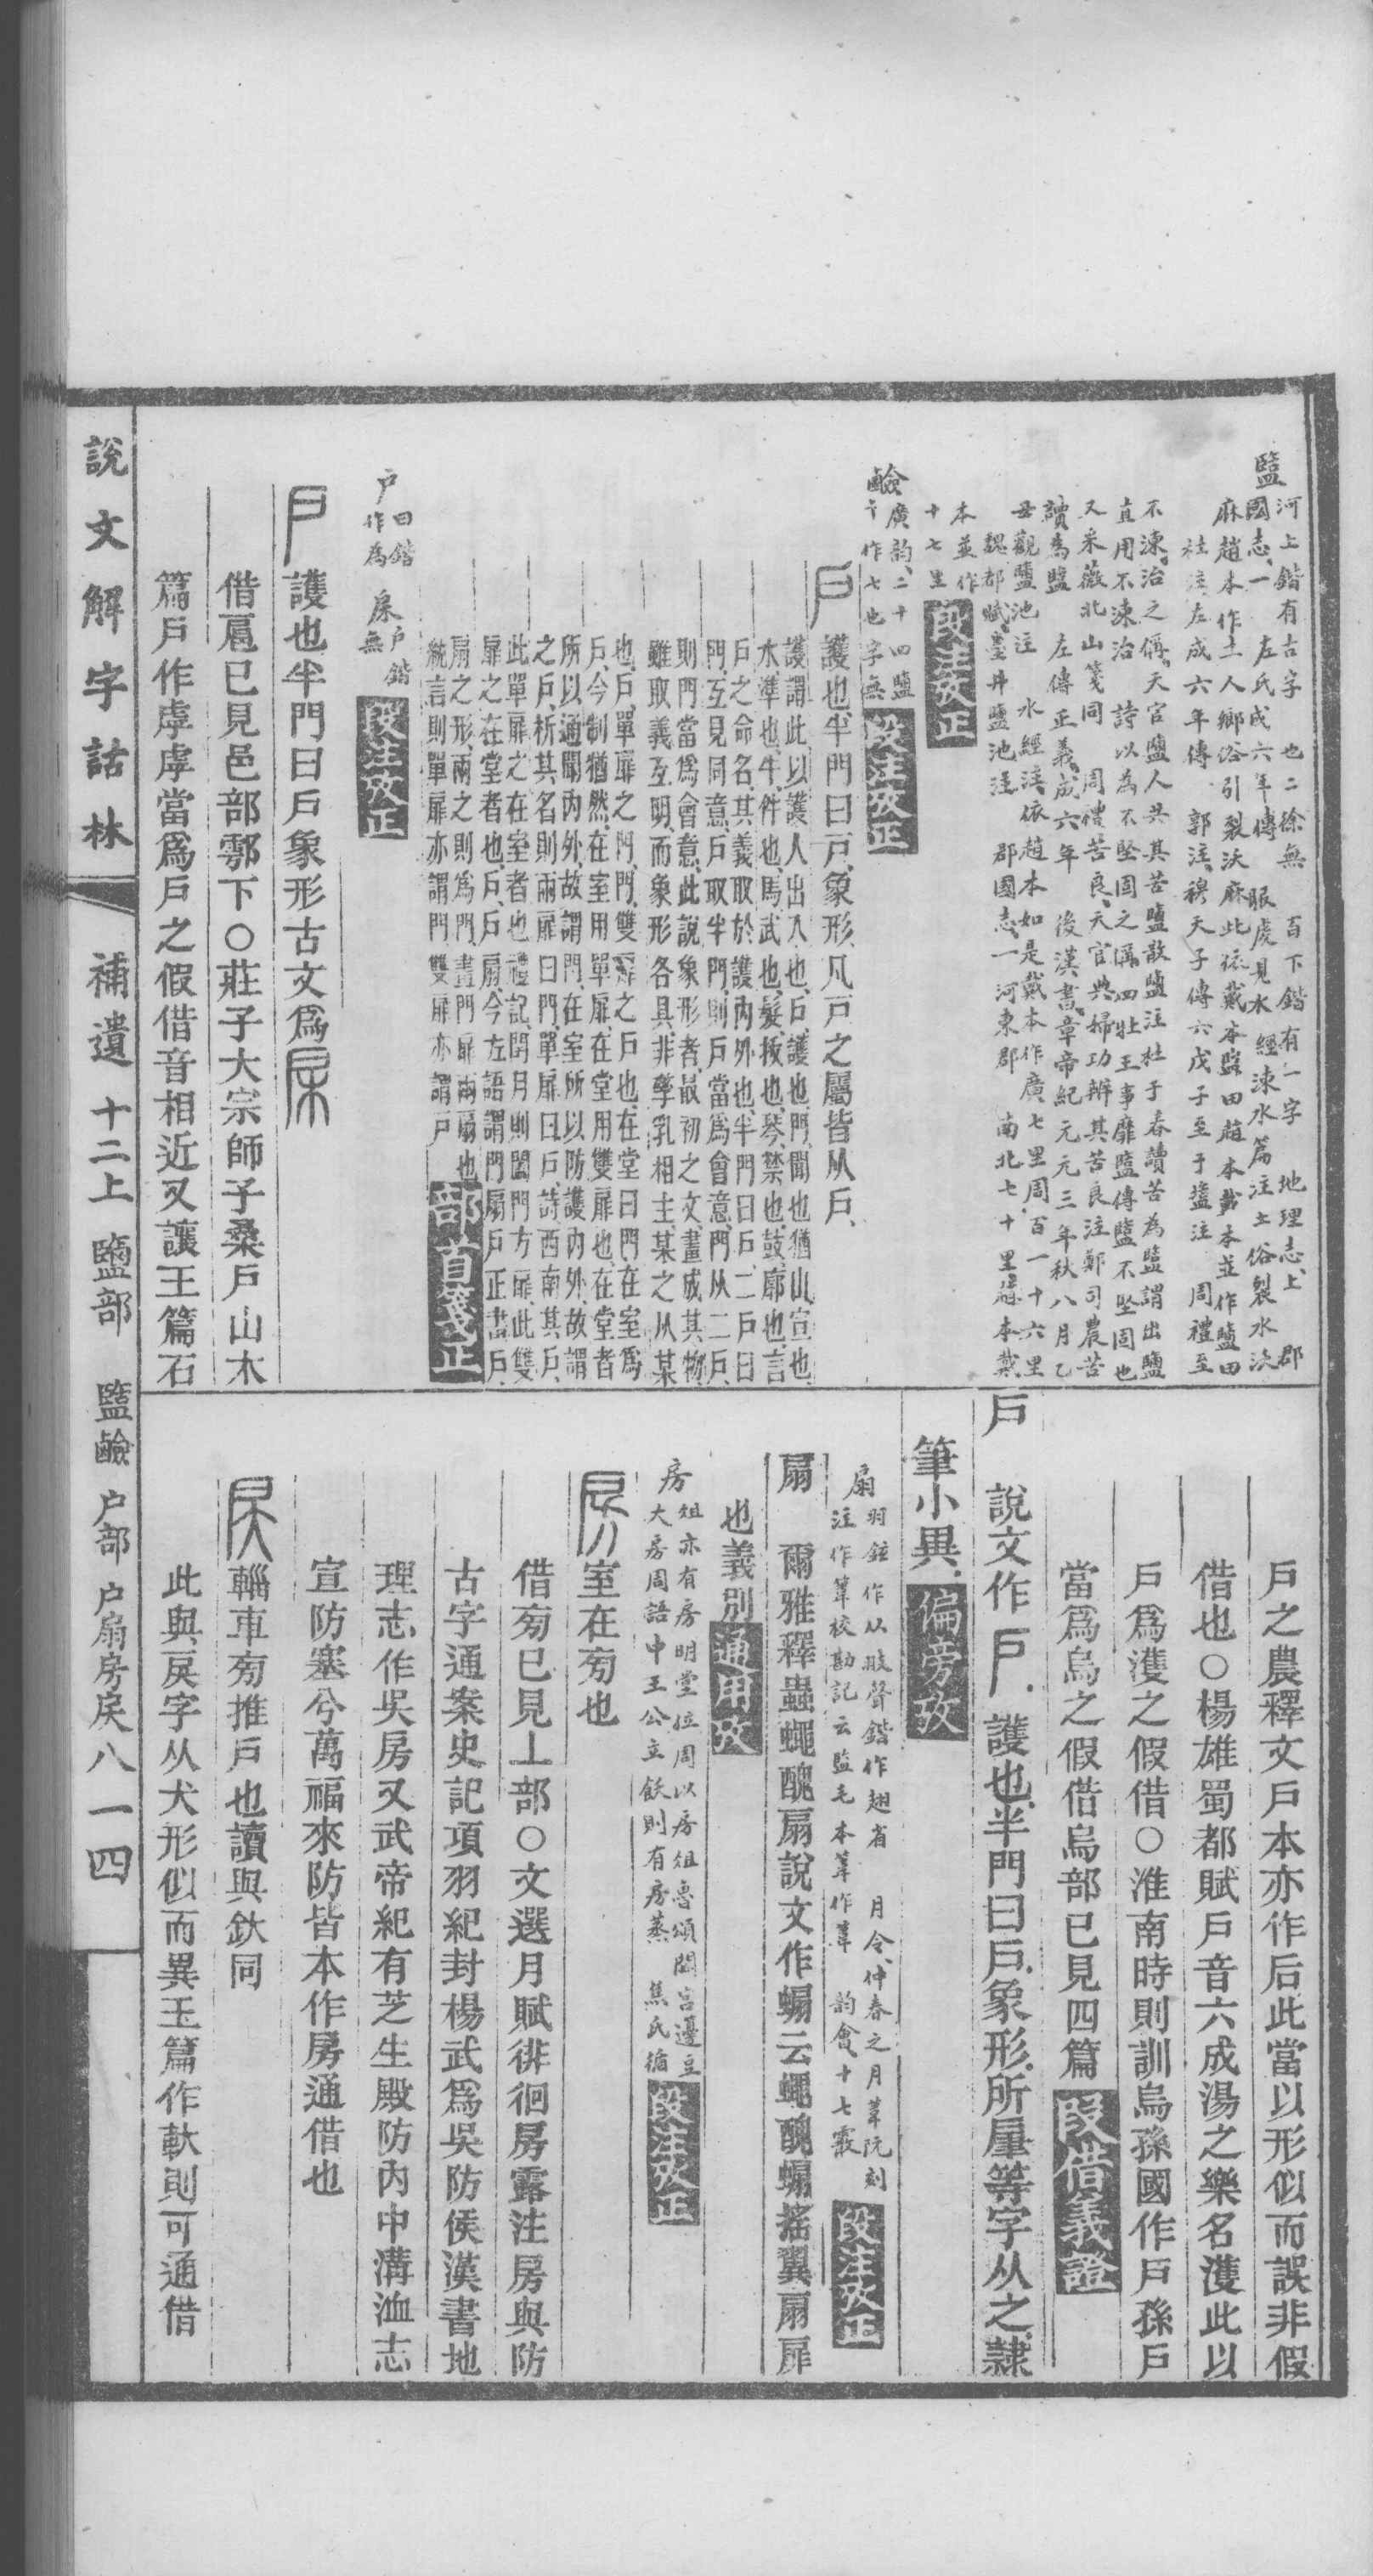 盬
河上鍇有古字　也二徐無　百下鍇有一字　地理志上　郡
國志一　左氏成六年傳　服虔見水經涑水篇注土俗裂水沃
麻趙本作土人鄉俗引裂沃麻此依戴本盬田趙本戴本並作鹽田
杜注左成六年傳　郭注穆天子傳六戊子至于盬注　周禮至
不湅治之偁天官鹽人共其苦鹽散鹽注杜子春讀苦為盬謂出鹽
直用不湅治　詩以為不堅固之偁四牡王事靡盬傳盬不堅固也
又采薇北山箋同　周禮苦良天官典婦功辨其苦良注鄭司農苦
讀為盬　左傳正義成六年　後漢書章帝紀元元三年秋八月乙
丑觀鹽池注　水經注依趙本如是戴本作廣七里周百一十六里
魏都賦墨井鹽池注　郡國志一河東郡　南北七十里趙本戴
本並作
十七里
段注攷正
鹼
廣韵二十四鹽
作七也字無
段注攷正
戶　護也半門曰戶象形凡戶之屬皆从戶
護謂此以護人出入也戶護也門聞也猶山宣也
水準也牛件也馬武也髮拔也琴禁也鼓廓也言
戶之命名其義取於護內外也半門曰戶二戶曰
門互見同意戶取半門則戶當爲會意門从二戶
則門當爲會意此說象形者最初之文畫成其物
雖取義互明而象形各具非孳乳相主某之从某
也戶單扉之門門雙扉之戶也在堂曰門在室爲
戶今制猶然在室用單扉在堂用雙扉也在堂者
所以通聞內外故謂門在室所以防護內外故謂
之戶析其名則兩扉曰門單扉曰戶詩西南其戶
此單扉之在室者也禮記閏月則闔門方扉此雙
扉之在堂者也戶戶扇今方語謂門扇戶正書戶
扇之形兩之則爲門畫門扉兩扇也
統言則單扉亦謂門雙扉亦謂戶
部首箋正
戶
曰鍇
作為
戶鍇
無
段注攷正
戶　護也半門曰戶象形古文爲𢨤
借扈已見邑部鄠下○莊子大宗師子桑戶山木
篇戶作虖虖當爲戶之假借音相近又讓王篇石
戶之農釋文戶本亦作后此當以形似而誤非假
借也○楊雄蜀都賦戶音六成湯之樂名濩此以
戶爲濩之假借○淮南時則訓烏孫國作戶孫戶
當爲烏之假借烏部已見四篇
段借義證
戶　說文作戶護也半門曰戶象形所屋等字从之隷
筆小異
偏旁攷
扇
羽鉉作从㕟聲鍇作翅省　月令仲春之月葦阮刻
注作葦校勘記云監毛本葦作葦　韵會十七霰
段注攷正
扇　爾雅釋蟲蠅醜扇說文作蝙云蠅醜蝙搖翼扇扉
也義別
通用攷
房
俎亦有房明堂位周以房俎魯頌閟宮籩豆
大房周語中王公立飫則有房蒸　焦氏循
段注攷正
房　室在㫄也
借㫄已見丄部○文選月賦徘徊房露注房與防
古字通案史記項羽紀封楊武爲吳防侯漢書地
理志作吳房又武帝紀有芝生殿防內中溝洫志
宣防塞兮萬福來防皆本作房通借也
戾　輜車㫄推戶也讀與釱同
此與戾字从犬形似而異玉篇作軑則可通借
說文解字詁林　補遺　十二上　鹽部　盬鹼　户部　户扇房戾　八一四